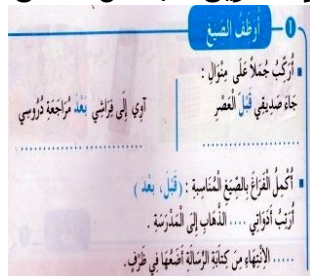 1 أُوَظِّفُ الصِّيَغَ
أُرَكِّبُ جُمَلًا عَلَى مِنْوَالِ :
جَاءَ صَدِيقِي قَبْلَ الْعَصْرِ
آوِي إِلَى فِرَاشِي بَعْدَ مُرَاجَعَةِ دُرُوسِي
أُكْمِلُ الْفَرَاغَ بِالصِّيَغِ الْمُنَاسِبَةِ : ( قَبْلَ، بَعْدَ )
أُرَتِّبُ أَدَوَاتِي .... الذَّهَابِ إِلَى الْمَدْرَسَةِ .
..... الْاِنْتِهَاءِ مِنْ كِتَابَةِ الرِّسَالَةِ أَضَعُهَا فِي ظَرْفٍ .